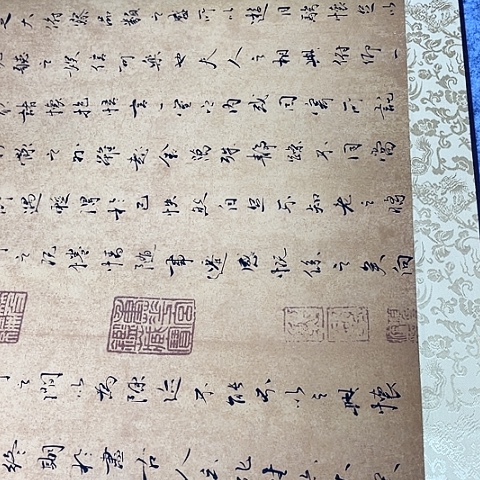 之大俯察品類之盛所以遊目騁懷足以
聽之娛信可樂也夫人之相與俯仰一
諸懷抱悟言一室之內或因寄所託
之外雖趣舍萬殊靜躁不同當
所遇蹔得於己怏然自足不知老之將
之既惓情隨事遷感慨係之矣向
之閒以為陳迹不能不以之興懷
終期於盡古人云死生